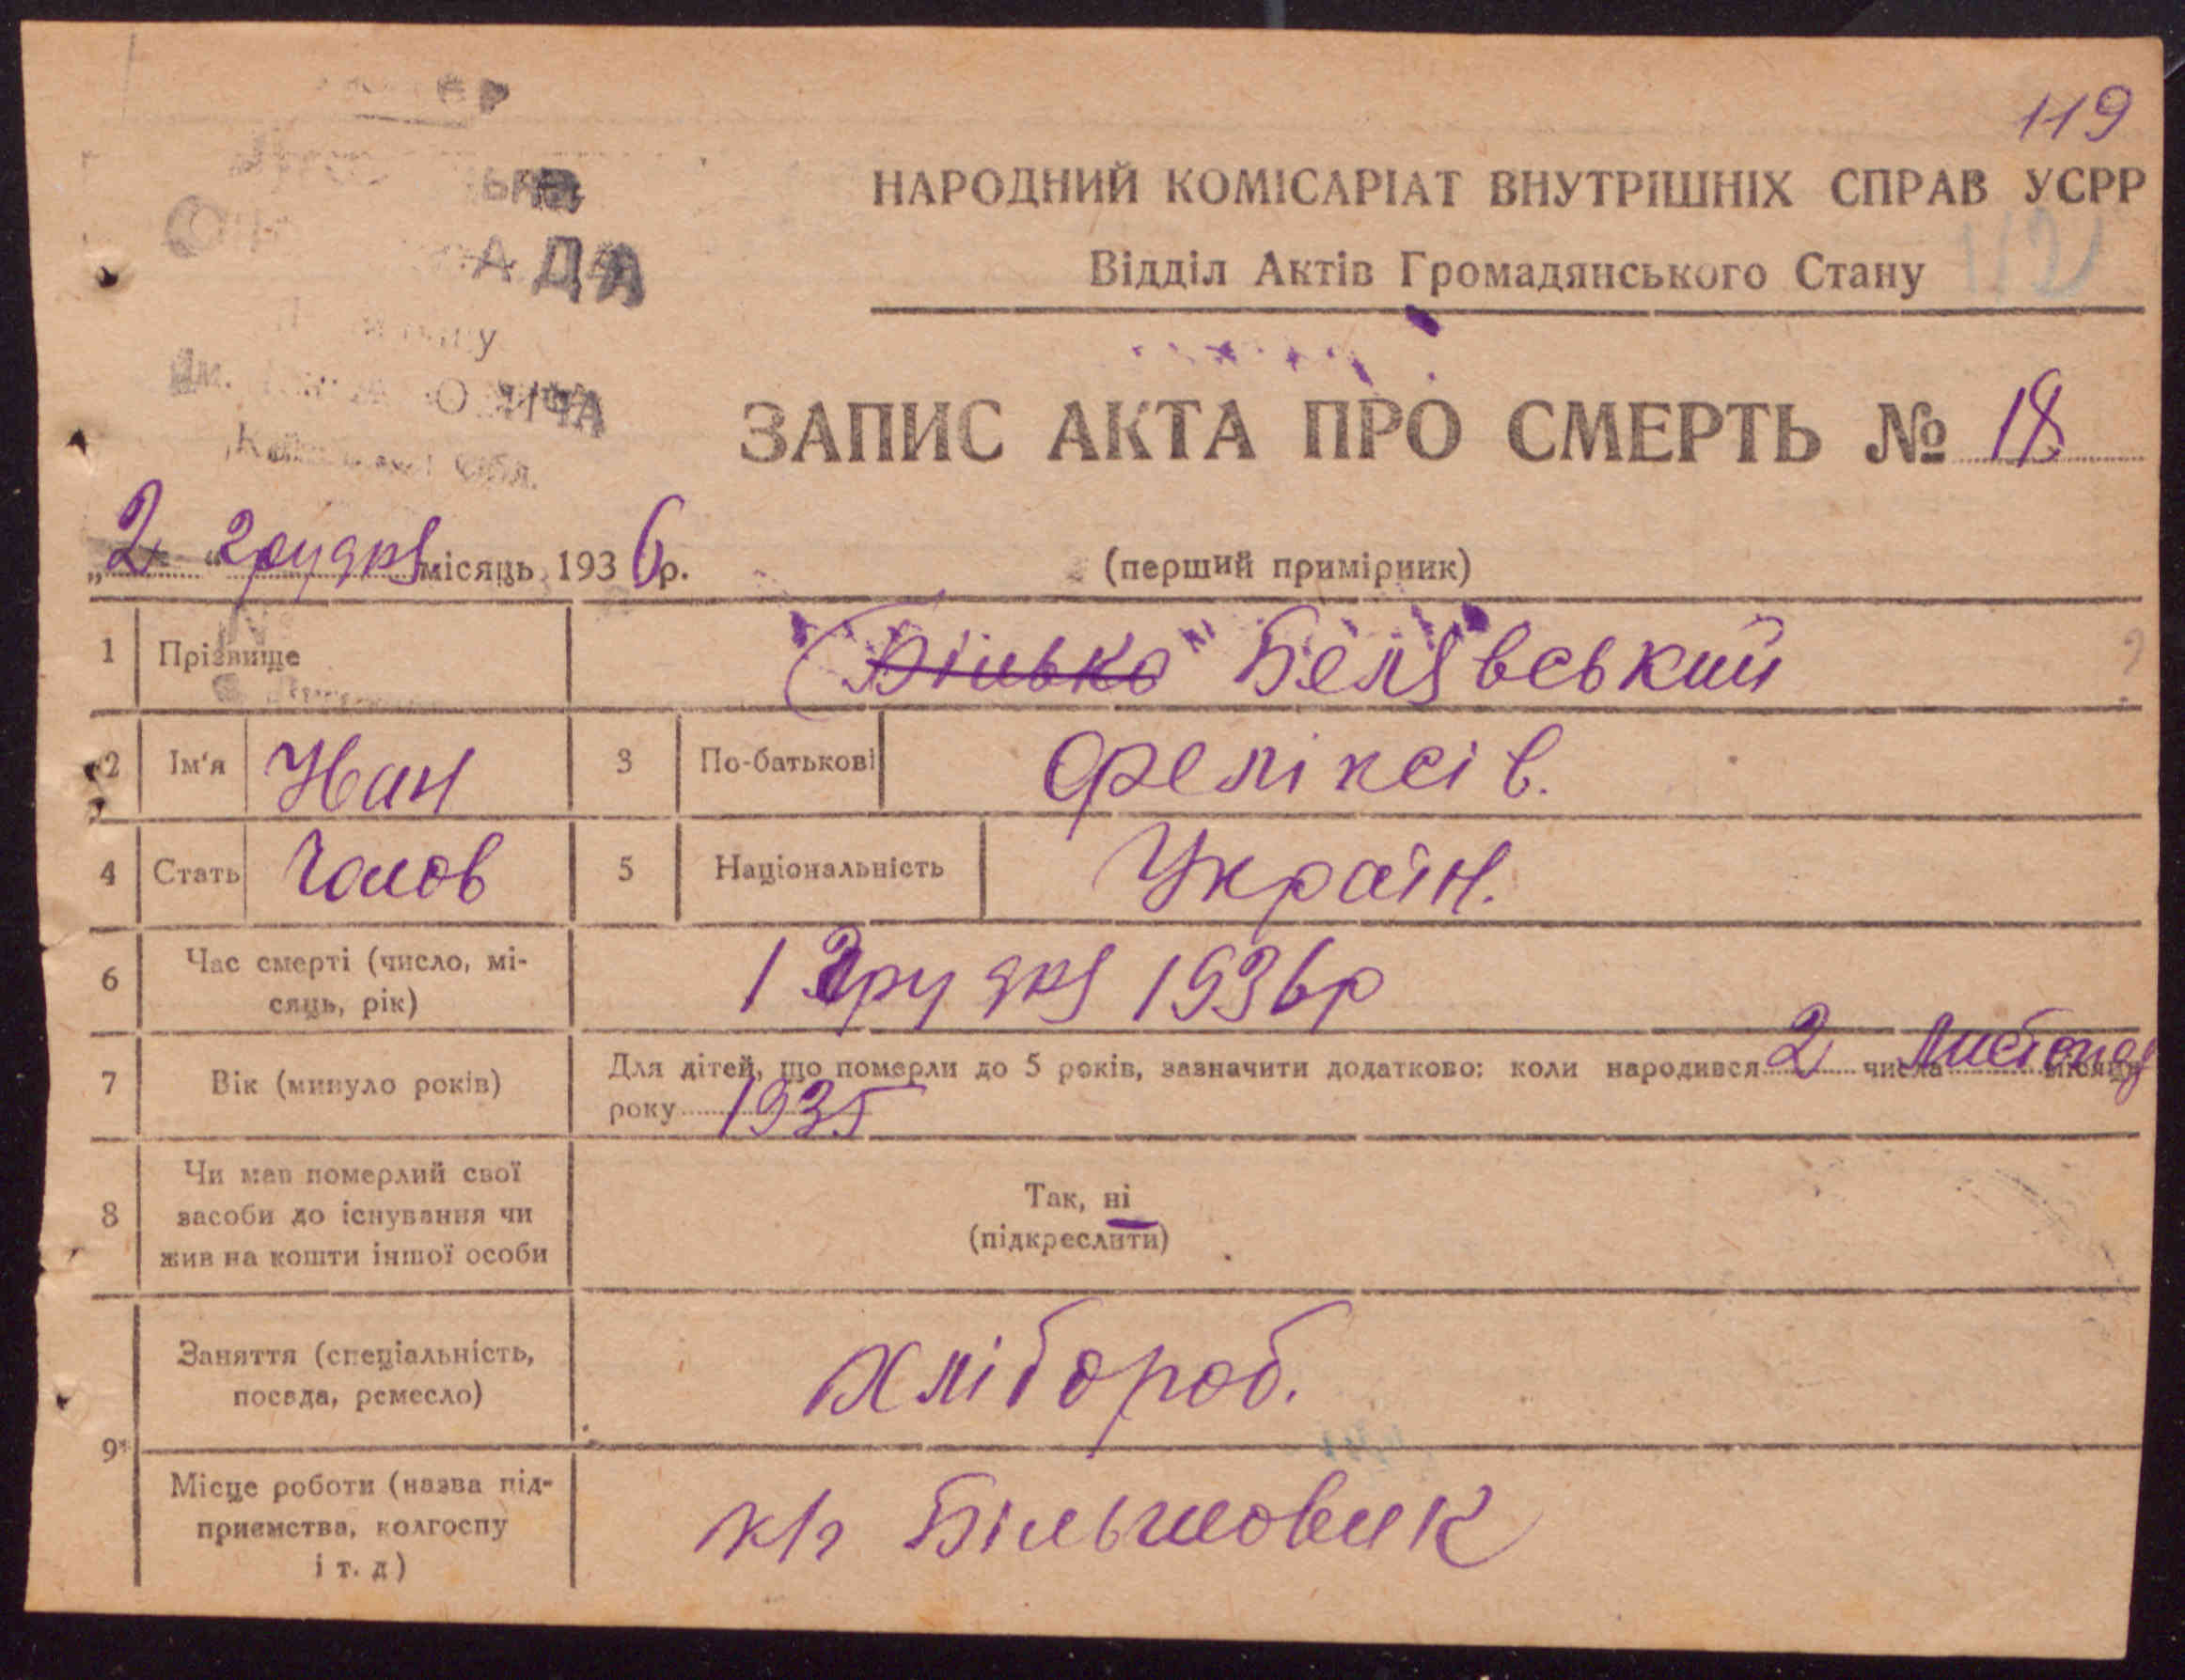 119
НАРОДНИЙ КОМІСАРІАТ ВНУТРІШНІХ СПРАВ УСРР
Відділ Актів Громадянського Стану
112
ЗАПИС АКТА ПРО СМЕРТЬ № 18
„2“ грудня місяць 1936 р.
(перший примірник)
1 Прізвище Білько Белявський
2 Ім'я Иван 3 По-батькові Феліксів.
4 Стать Чолов 5 Національність Україн.
6 Час смерті (число, мі-
сяць, рік)
1 Грудня 1936р
7 Вік (минуло років) Для дітей, що померли до 5 років, зазначити додатково: коли народився 2 числа листопад місяця
року 1935
8 Чи мав померлий свої
засоби до існування чи
жив на кошти іншої особи
Так, ні
(підкреслити)
9*
Заняття (спеціальність,
посада, ремесло)
Хлібороб.
Місце роботи (назва під-
приємства, колгоспу
і т. д)
к/г Більшовик